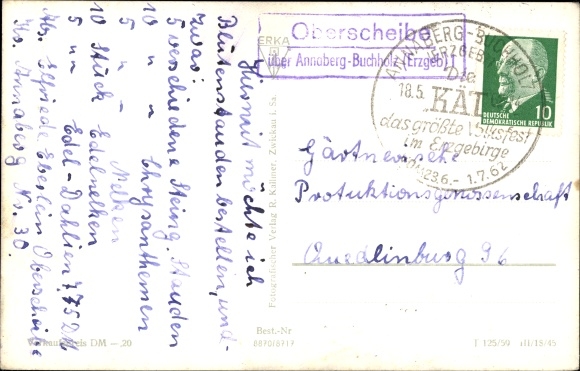 Hiermit möchte ich
Blütenstauden bestellen, und-
zwar:
5 verschiedene Steing. Stauden
10 " " Chrysanthemen
5 " - Nelken
10 Stück Edelnelken
5 " Edel-Dahlien 7,75 DM
Abs. Elfriede Eberlin Oberscheibe
Krs. Annaberg Nr. 30
Verkaufspreis DM —.20
ERKA
Fotografischer Verlag R. Kallmer, Zwickau i. Sa.
Oberscheibe
über Annaberg-Buchholz (Erzgeb)
ANNABERG-BUCHHOLZ
ERZGEB
Die
18.5.
KÄT
das größte Volksfest
im Erzgebirge
23.6.- 1.7.62
10
DEUTSCHE
DEMOKRATISCHE REPUBLIK
Gärtnerische
Protuktionsgenossenschaft
Quedlinburg
Best.-Nr
8870/8919
T 125/59 III/18/45